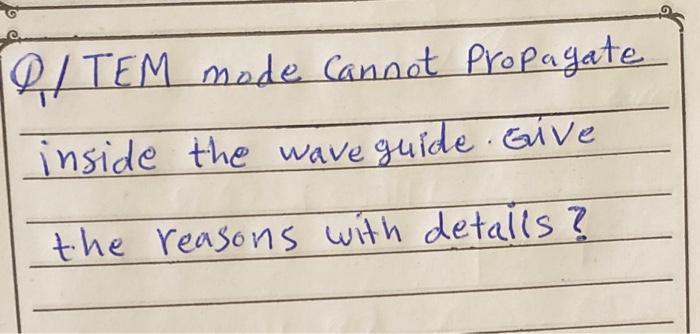 Q1/ TEM mode Cannot Propagate
inside the wave guide. Give
the reasons with details?